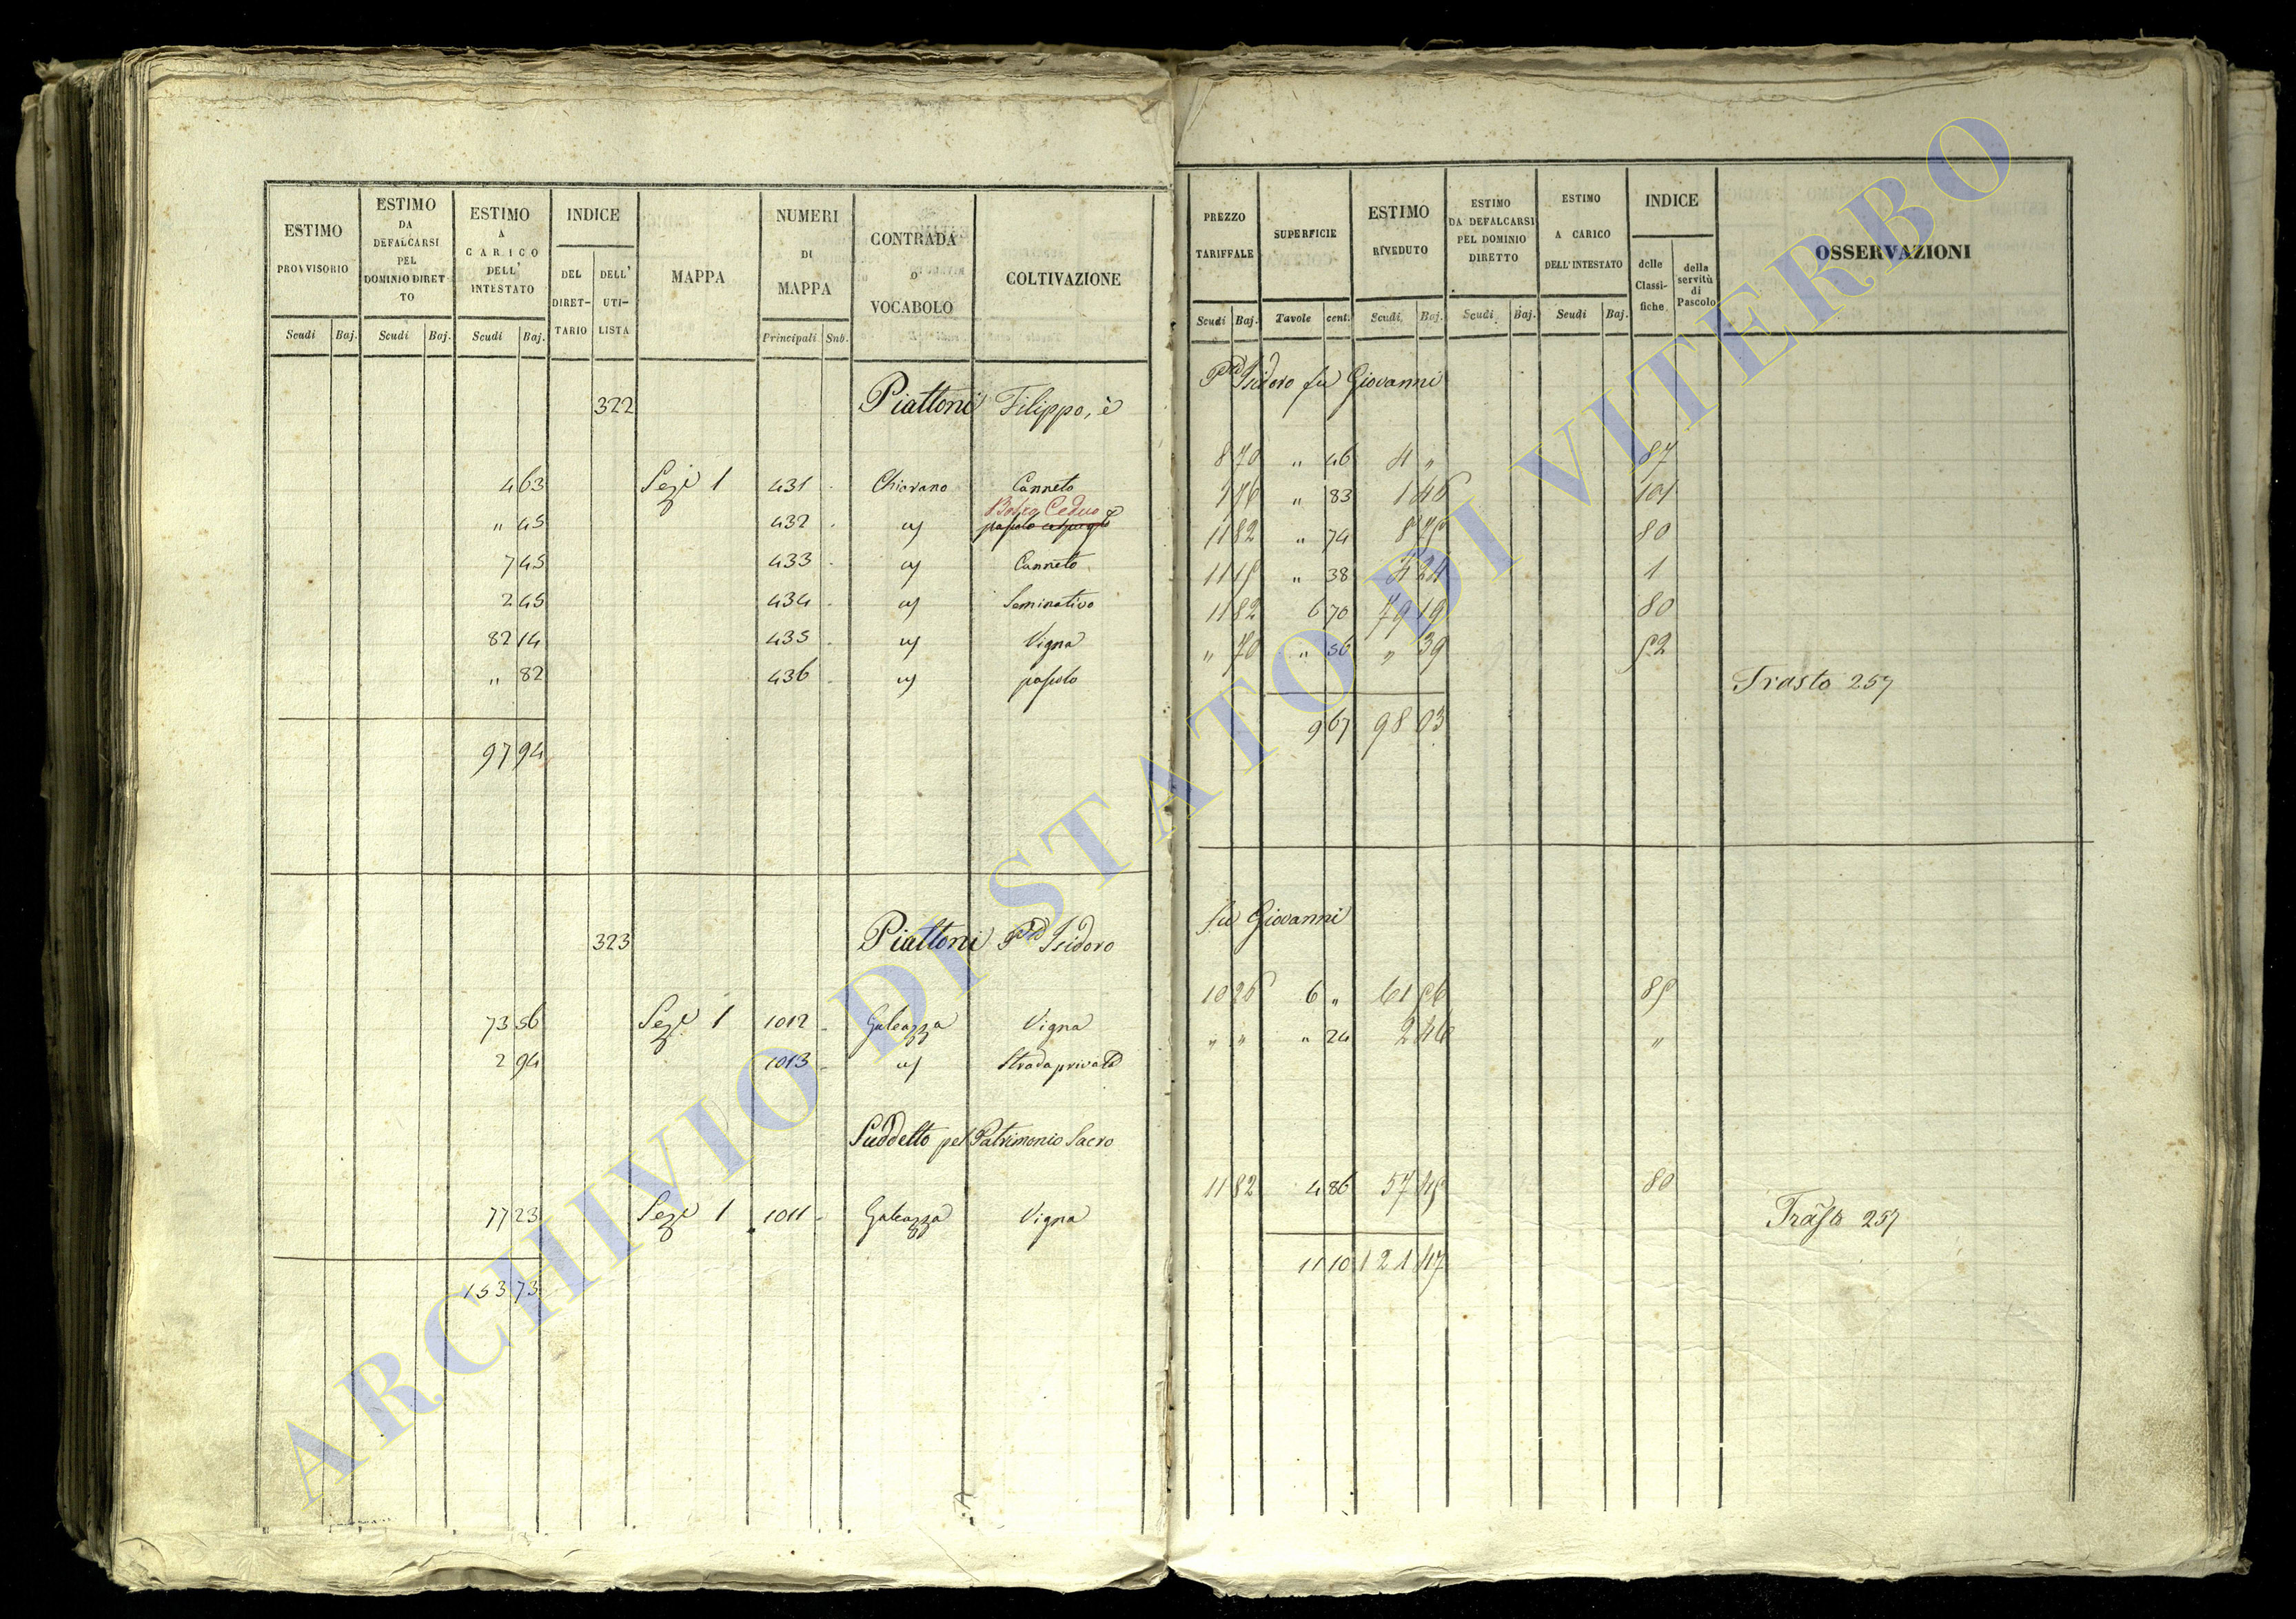 ESTIMO PROVVISORIO
ESTIMO DA DEFALCARSI PEL DOMINIO DIRETTO
ESTIMO A CARICO DELL' INTESTATO
INDICE
DEL DIRETTARIO
DELL' UTILISTA
MAPPA
NUMERI DI MAPPA
CONTRADA O VOCABOLO
COLTIVAZIONE
Scudi Baj. Scudi Baj. Scudi Baj. Principali Sub.
322 Piattoni Filippo, è
4 63 Sez.e 1 431 Chiorano Canneto
Bosco Ceduo
" 45 432 "
7 45 433 " Canneto
2 45 434 " Seminativo
82 14 435 " Vigna
" 82 436 " pascolo
97 94
323 Piattoni Pād Isidoro
73 56 Sez.e 1 1012 Galeazza Vigna
2 94 1013 " Strada privata
Suddetto pel Patrimonio Sacro
77 23 Sez.e 1 1011 Galeazza Vigna
153 73
PREZZO TARIFFALE
SUPERFICIE
ESTIMO RIVEDUTO
ESTIMO DA DEFALCARSI PEL DOMINIO DIRETTO
ESTIMO A CARICO DELL'INTESTATO
INDICE
delle Classifiche
della servitù di Pascolo
OSSERVAZIONI
Scudi Baj. Tavole cent. Scudi Baj. Scudi Baj. Scudi Baj.
Pād Isidoro fu Giovanni
8 70 " 46 4 " 87
1 76 " 83 1 46 101
11 82 " 74 8 75 80
11 15 " 38 4 24 1
11 82 6 70 79 19 80
" 70 " 56 " 39 52
Trasto 257
9 67 98 03
fu Giovanni
10 26 6 " 61 56 85
" " " 24 2 46 "
11 82 4 86 57 45 80
Trasto 257
11 10 121 47
ARCHIVIO DI STATO DI VITERBO